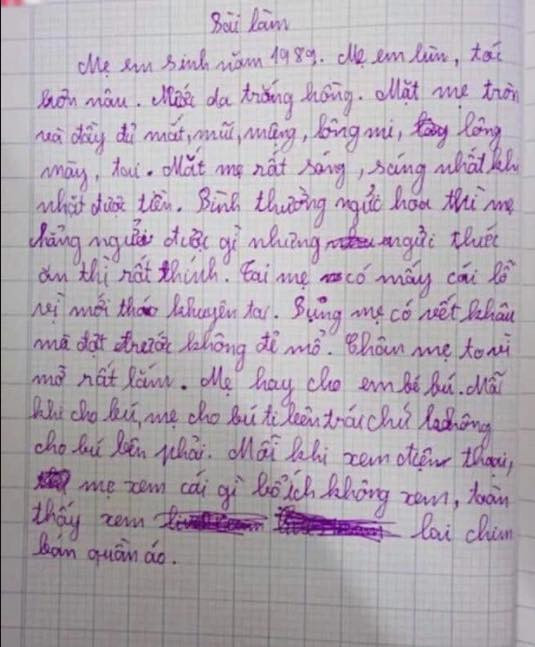 Bài làm
Mẹ em sinh năm 1989. Mẹ em lùn, tóc
hơn nâu. Nước da trắng hồng. Mặt mẹ tròn
và đầy đủ mắt, mũi, miệng, lông mi, lông
mày, tai. Mắt mẹ rất sáng, sáng nhất khi
nhặt được tiền. Bình thường ngửi hoa thì mẹ
chẳng ngửi được gì nhưng ngửi thức
ăn thì rất thính. Tai mẹ có mấy cái lỗ
vì mới tháo khuyên tai. Bụng mẹ có vết khâu
mà đặt trước không đẻ mổ. Chân mẹ to vì
mỡ rất lắm. Mẹ hay cho em bé bú. Mỗi
khi cho bú, mẹ cho bú ti bên trái chứ không
cho bú bên phải. Mỗi khi xem điện thoại,
mẹ xem cái gì bổ ích không xem, toàn
thấy xem lai chim
bán quần áo.